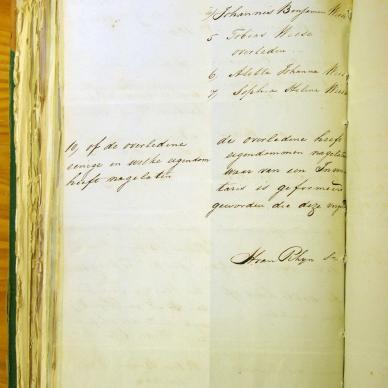 4, Johannis Benjamin
5 Tobias Wiese
overleden
6, Aletta Johanna
7, Sophia Helena
10, of de overledene
eenige en welke eigendom
heeft nagelaten
de overledene heeft
eigendommen nagelaten
waar van een Inven
taris is geformeerd
geworden die deze
van Rhyn